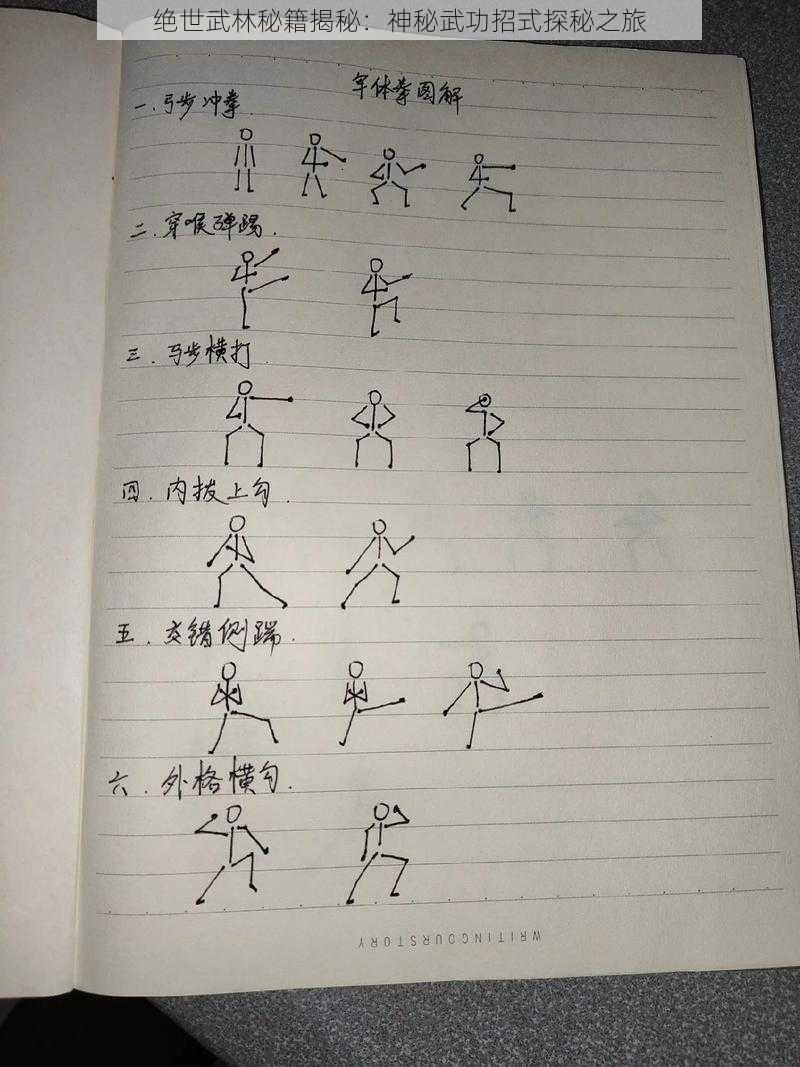 绝世武林秘籍揭秘：神秘武功招式探秘之旅
军体拳图解
一.弓步冲拳.
二.穿喉弹踢.
三.马步横打
四.内拨上勾.
五.交错侧踹.
六.外格横勾.
WRITINGOURSTORY